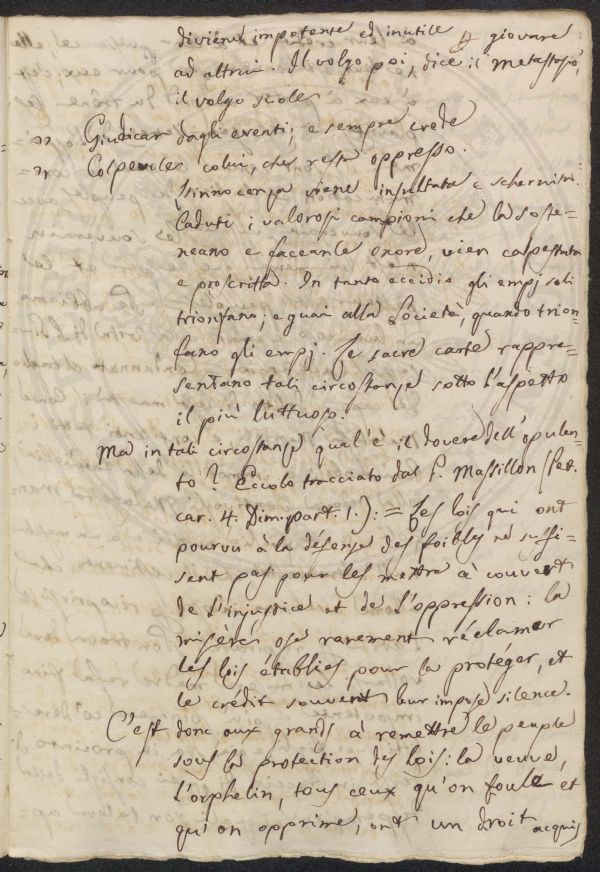 diviene impotente ed inutile p giovare
ad altrui. Il volgo poi, dice il Metastasio,
il volgo suole
" Giudicar dagli eventi, e sempre crede
" Colpevole colui, che resta oppresso.
L'innocenza viene insultata e schernita.
Caduti i valorosi campioni che la soste=
neano e faceanle onore, vien calpestata
e proscritta. In tanto eccidio gli empj soli
trionfano; e guai alla Società, quando trion=
fano gli empj. Le sacre carte rappre=
sentano tali circostanze sotto l'aspetto
il più luttuoso.
Ma in tali circostanze qual'è il dovere dell'opulen=
to? Eccolo tracciato dal P. Massillon (Pet.
car. 4. Dim. part. 1.): = Les lois qui ont
pourvu à la défense des foibles ne suffi=
sent pas pour les mettre à couvert
de l'injustice et de l'oppression: la
misère ose rarement réclamer
les lois établies pour la protéger, et
le crédit souvent leur impose silence.
C'est donc aux grands à remettre le peuple
sous la protection des lois: la veuve,
l'orphelin, tous ceux qu'on foule et
qu'on opprime, ont un droit acquis